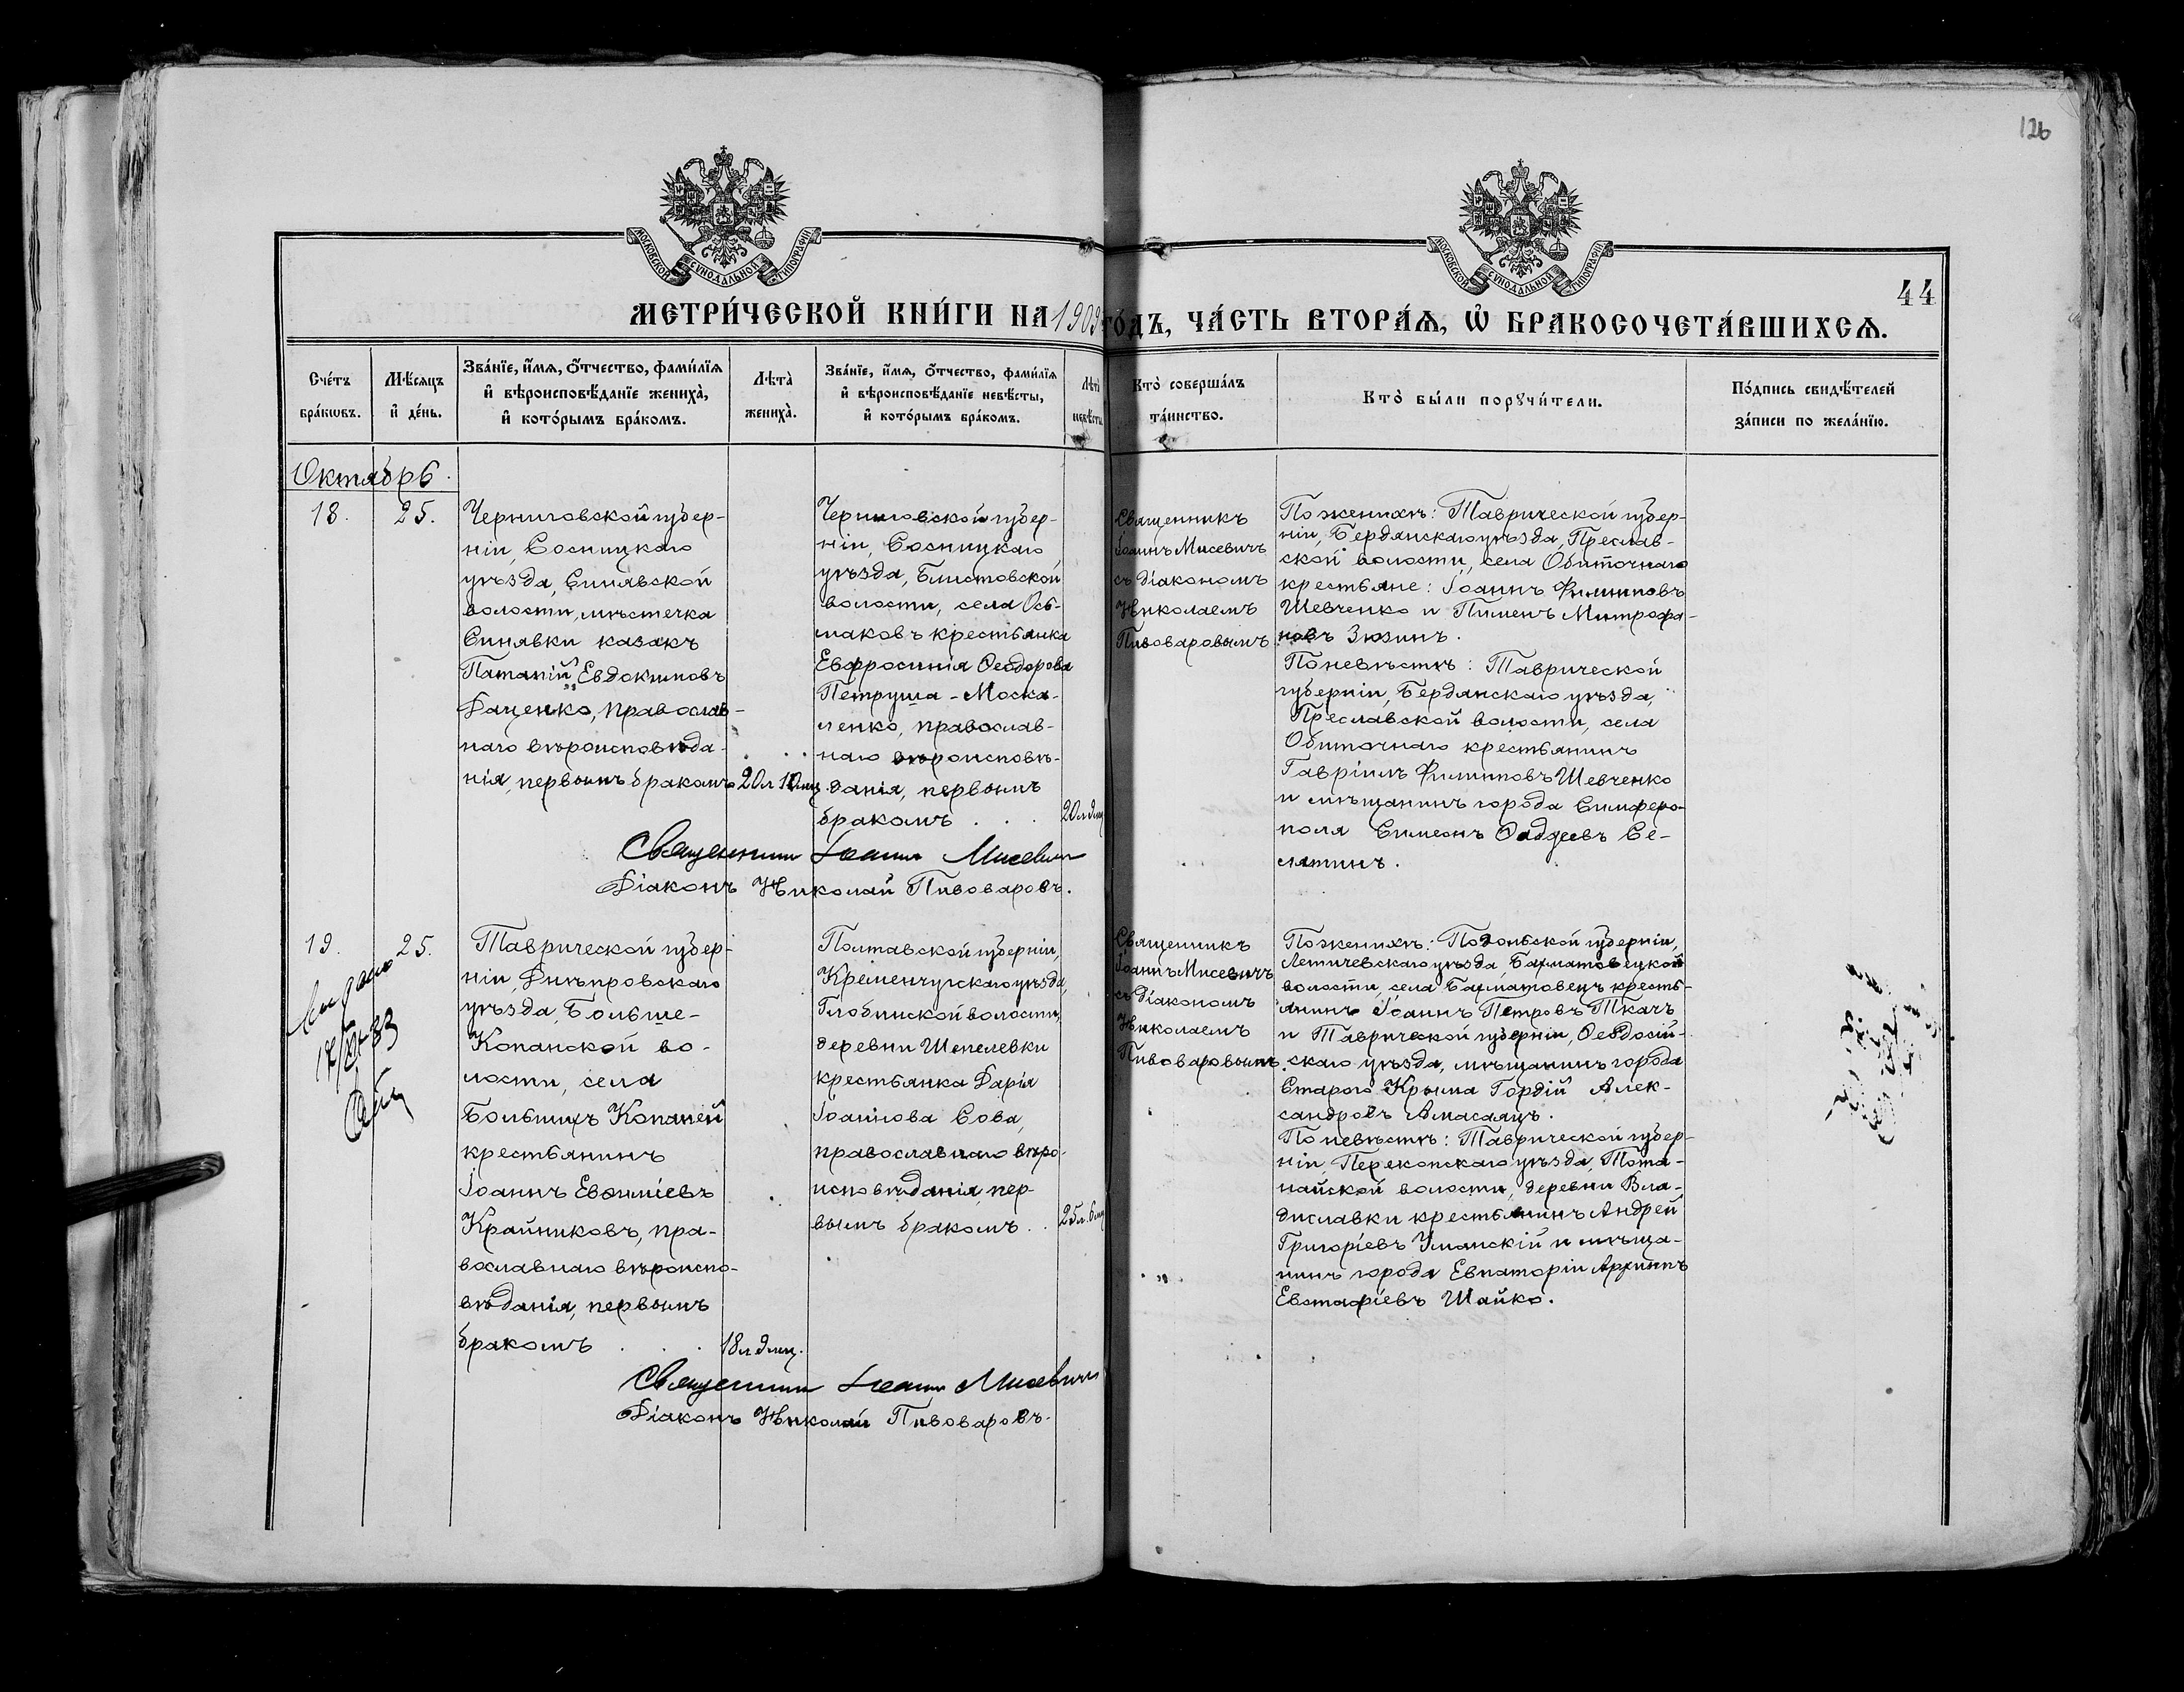 126
МОСКОВСКОЙ СѴНОДАЛЬНОЙ ТИПОГРАФІИ
МОСКОВСКОЙ СѴНОДАЛЬНОЙ ТИПОГРАФІИ
44
МЕТРИ́ЧЕСКОЙ КНИ́ГИ НА 1909 ГО́ДЪ, ЧА́СТЬ ВТОРА́Ѧ, Ѽ БРАКОСОЧЕТА́ВШИХСѦ.
Сче́тъ
бра́кѡвъ.
Мѣ́сѧцъ
и҆ де́нь.
Зва́нїе, и҆́мѧ, ѻ҆́тчество, фами́лїѧ
и҆ вѣроисповѣ́данїе жениха̀,
и҆ кото́рымъ бра́комъ.
Лѣта̀
жениха̀.
Зва́нїе, и҆́мѧ, ѻ҆́тчество, фами́лїѧ
и҆ вѣроисповѣ́данїе невѣ́сты,
и҆ кото́рымъ бра́комъ.
Лѣта̀
невѣ́сты
Кто̀ соверша́лъ
та́инство.
Кто̀ бы́ли порꙋчи́тели.
По́дпись свидѣ́телей
за́писи по жела́нїю.
Октябрь.
18.
25.
Черниговской губер-
ніи, Сосницкаго
уѣзда, Синявской
волости, мѣстечка
Синявки казакъ
Патапій Евдокимовъ
Даценко, православ-
наго вѣроисповѣда-
нія, первымъ бракомъ
20 л 10 мц.
Черниговской губер-
ніи, Сосницкаго
уѣзда, Блистовской
волости, села Ось-
маковъ крестьянка
Евфросинія Ѳеодорова
Петруша-Моска-
ленко, православ-
наго вѣроисповѣ-
данія, первымъ
бракомъ . . .
20 л 9 мц
Священникъ
Іоаннъ Мисевичъ
съ діакономъ
Николаемъ
Пивоваровымъ.
По женихѣ: Таврической губер-
ніи, Бердянскаго уѣзда, Преслав-
ской волости, села Обиточнаго
крестьяне: Іоаннъ Филипповъ
Шевченко и Пименъ Митрофа-
новъ Зюзинъ.
По невѣстѣ: Таврической
губерніи, Бердянскаго уѣзда,
Преславской волости, села
Обиточнаго крестьянинъ
Гавріилъ Филипповъ Шевченко
и мѣщанинъ города Симферо-
поля Симеонъ Ѳаддеевъ Се-
лятинъ.
Священникъ Іоаннъ Мисевичъ
Діаконъ Николай Пивоваровъ.
19.
25.
Выдано
Таврической губер-
ніи, Днѣпровскаго
уѣзда, Больше-
Копанской во-
лости, села
Большихъ Копаней
крестьянинъ
Іоаннъ Евѳиміевъ
Крайниковъ, пра-
вославнаго вѣроиспо-
вѣданія, первымъ
бракомъ . . .
18 л 9 мц.
Полтавской губерніи,
Кременчугскаго уѣзда,
Глобинской волости,
деревни Шепелевки
крестьянка Дарія
Іоаннова Сова,
православнаго вѣро-
исповѣданія, пер-
вымъ бракомъ . .
25 л. 6 мц
Священникъ
Іоаннъ Мисевичъ
съ діакономъ
Николаемъ
Пивоваровымъ.
По женихѣ: Подольской губерніи,
Летичевскаго уѣзда, Бахматовецкой
волости, села Бахматовецъ кресть-
янинъ Іоаннъ Петровъ Ткачъ
и Таврической губерніи, Ѳеодосій-
скаго уѣзда, мѣщанинъ города
Стараго Крыма Гордій Алек-
сандровъ Амасаянъ.
По невѣстѣ: Таврической губер-
ніи, Перекопскаго уѣзда, Тота-
найской волости, деревни Вла-
диславки крестьянинъ Андрей
Григоріевъ Уманскій и мѣща-
нинъ города Евпаторіи Архиппъ
Евстафіевъ Шайко.
Священникъ Іоаннъ Мисевичъ
Діаконъ Николай Пивоваровъ.